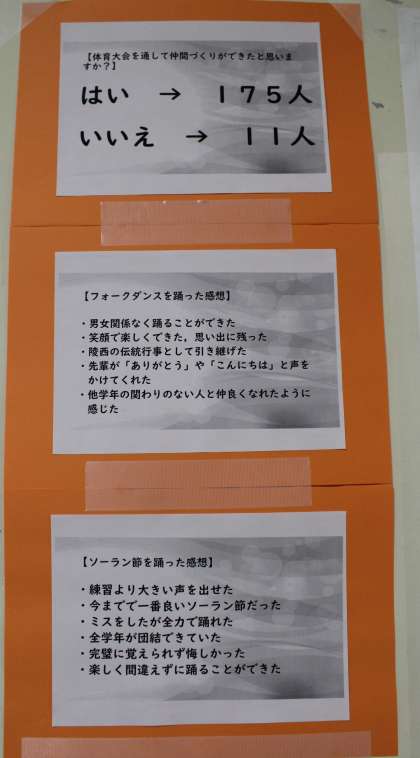 【体育大会を通して仲間づくりができたと思いま
すか？】
はい　→　１７５人
いいえ　→　１１人
【フォークダンスを踊った感想】
・男女関係なく踊ることができた
・笑顔で楽しくできた，思い出に残った
・陵西の伝統行事として引き継げた
・先輩が「ありがとう」や「こんにちは」と声を
かけてくれた
・他学年の関わりのない人と仲良くなれたように
感じた
【ソーラン節を踊った感想】
・練習より大きい声を出せた
・今までで一番良いソーラン節だった
・ミスをしたが全力で踊れた
・全学年が団結できていた
・完璧に覚えられず悔しかった
・楽しく間違えずに踊ることができた